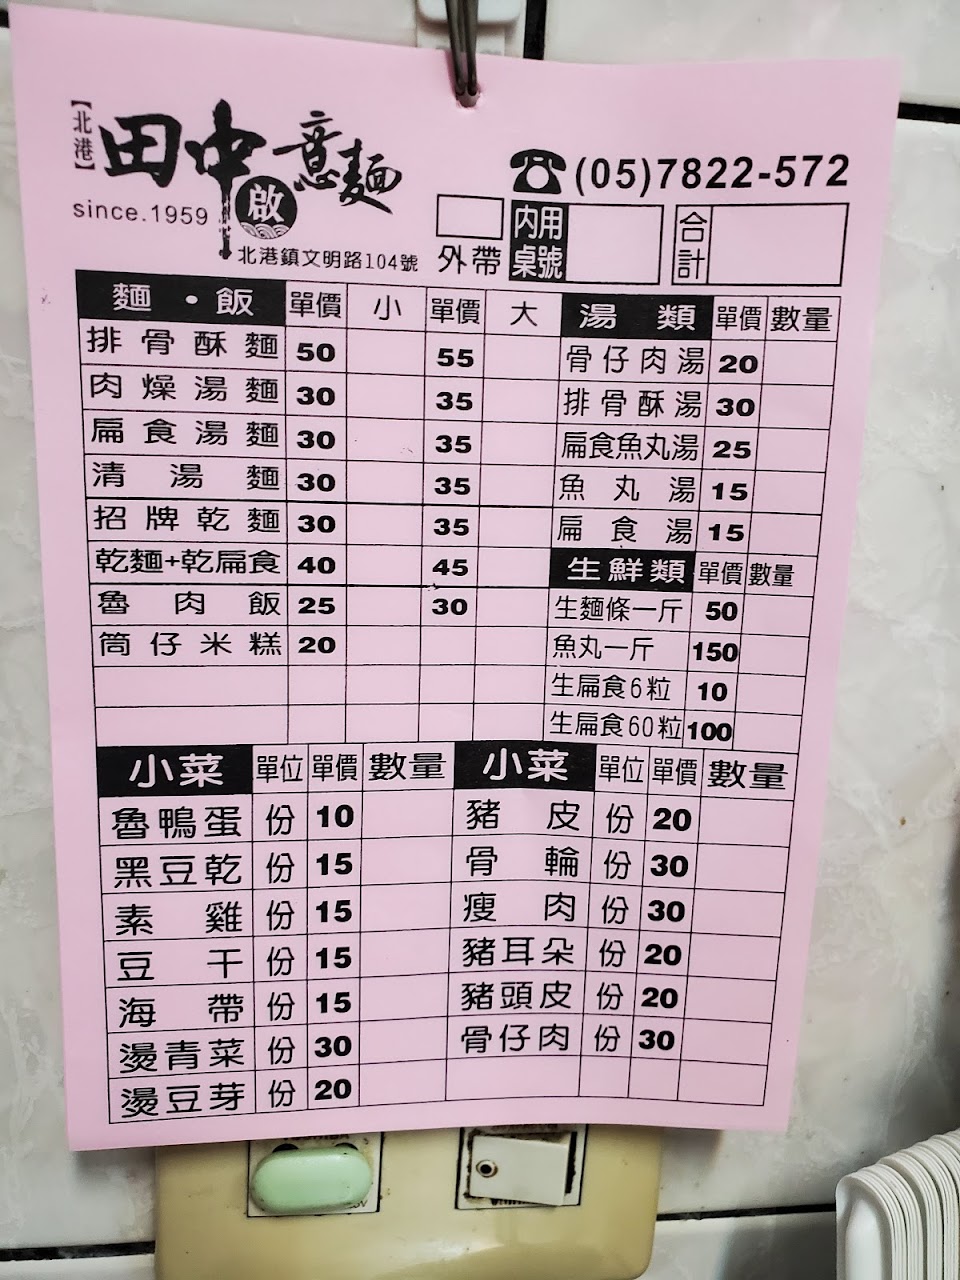 【北港】田中意麵
啟
since.1959
北港鎮文明路104號
(05)7822-572
外帶 內用桌號 合計
麵・飯 單價 小 單價 大
排骨酥麵 50 55
肉燥湯麵 30 35
扁食湯麵 30 35
清湯麵 30 35
招牌乾麵 30 35
乾麵+乾扁食 40 45
魯肉飯 25 30
筒仔米糕 20
湯類 單價 數量
骨仔肉湯 20
排骨酥湯 30
扁食魚丸湯 25
魚丸湯 15
扁食湯 15
生鮮類 單價 數量
生麵條一斤 50
魚丸一斤 150
生扁食6粒 10
生扁食60粒 100
小菜 單位 單價 數量
魯鴨蛋 份 10
黑豆乾 份 15
素雞 份 15
豆干 份 15
海帶 份 15
燙青菜 份 30
燙豆芽 份 20
小菜 單位 單價 數量
豬皮 份 20
骨輪 份 30
瘦肉 份 30
豬耳朵 份 20
豬頭皮 份 20
骨仔肉 份 30